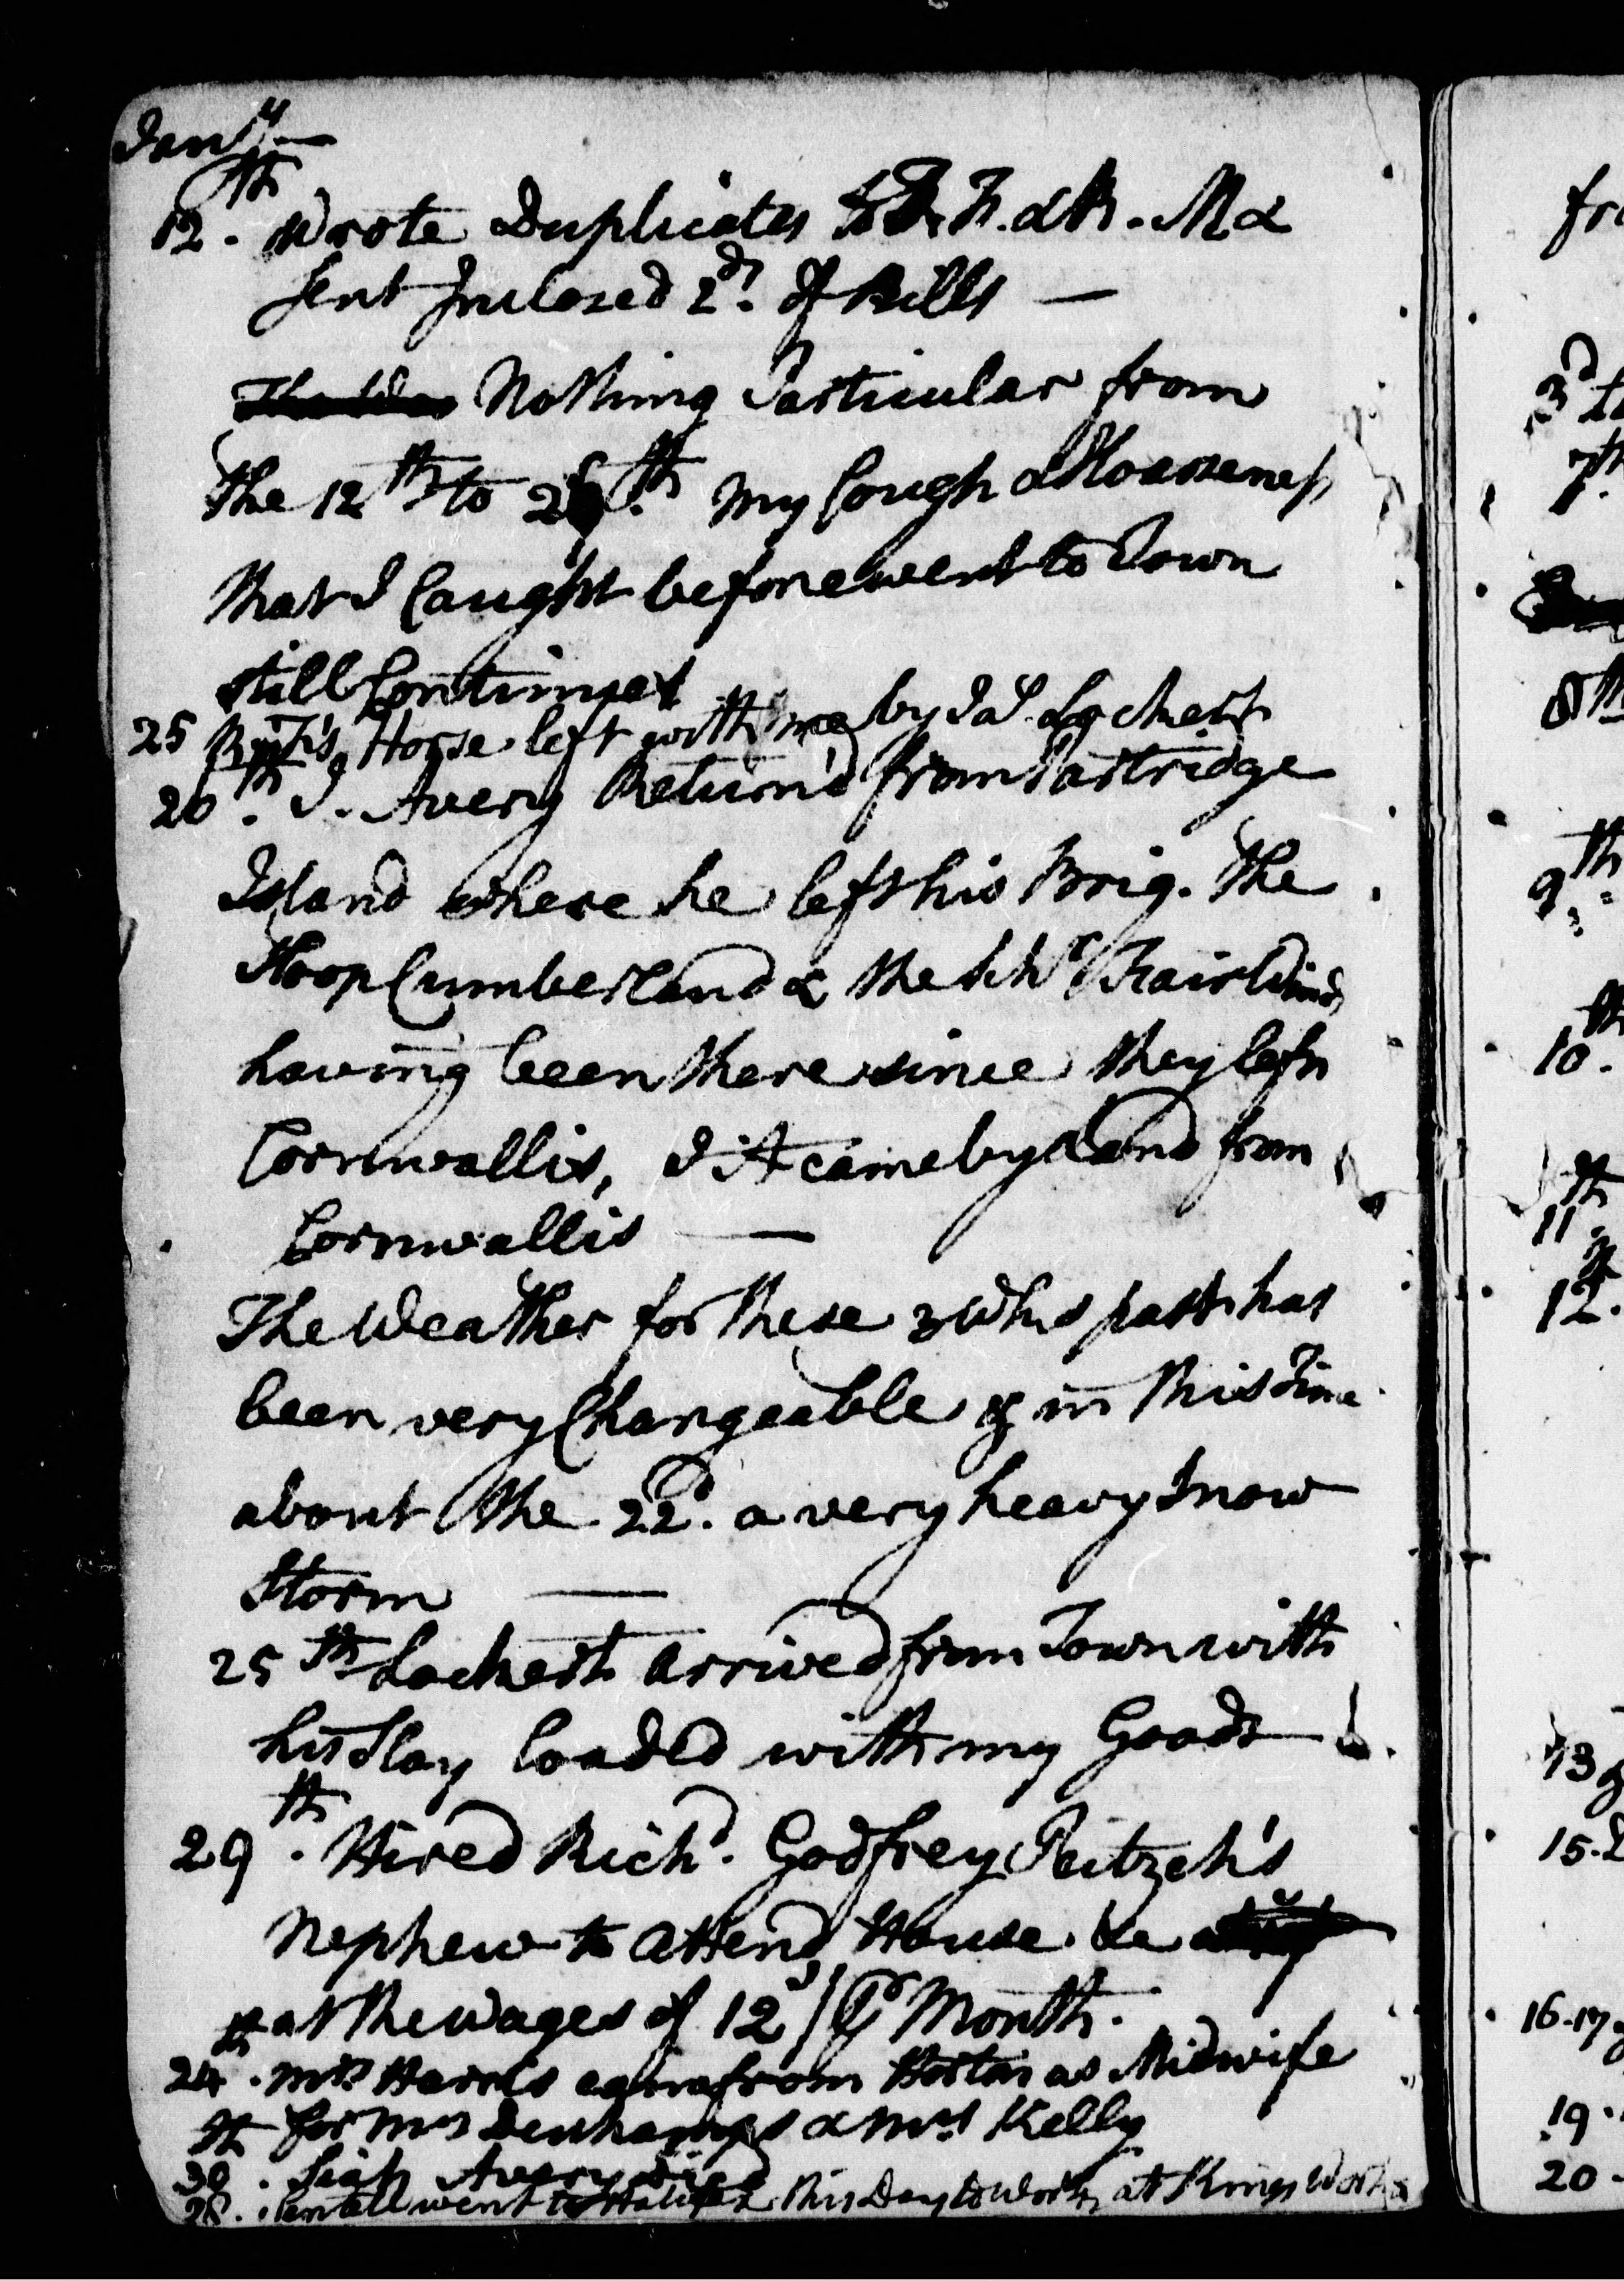 Jany.
12th. Wrote Duplicates to B. F. & R. M &
sent Inclosed 2d. of Bills —
Nothing Particular from
the 12th to 26th. my Cough & Hoarseness
that I Caught before went to Town
still Continues
25 Horse left with me by Ja.s Lockert
20th. J. Avery Return'd from Partridge
Island where he left his Brig. the
Sloop Cumberland & the Schr. Fair Wind
having been there since they left
Cornwallis, J A came by Land from
Cornwallis —
The Weather for these 3 Wks past has
been very Changeable & in this Time
about the 22d. a very heavy Snow
Storm —
25th Lockert arrived from Town with
his Slay loaded with my Goods
29th. Hired Richd. Godfrey Peitzch's
Nephew to attend House &c
at the wages of 12s/ Pr Month.
24th. Mrs. Harris came from Horton as Midwife
for Mrs Denhamps & Mrs. Kelly
30th. Avery died
28. went to Halifax this Day to Work at Kings Works
fro
3d
7th
8th
9th.
10th.
11th
12th.
13
15.
16.17
19.
20